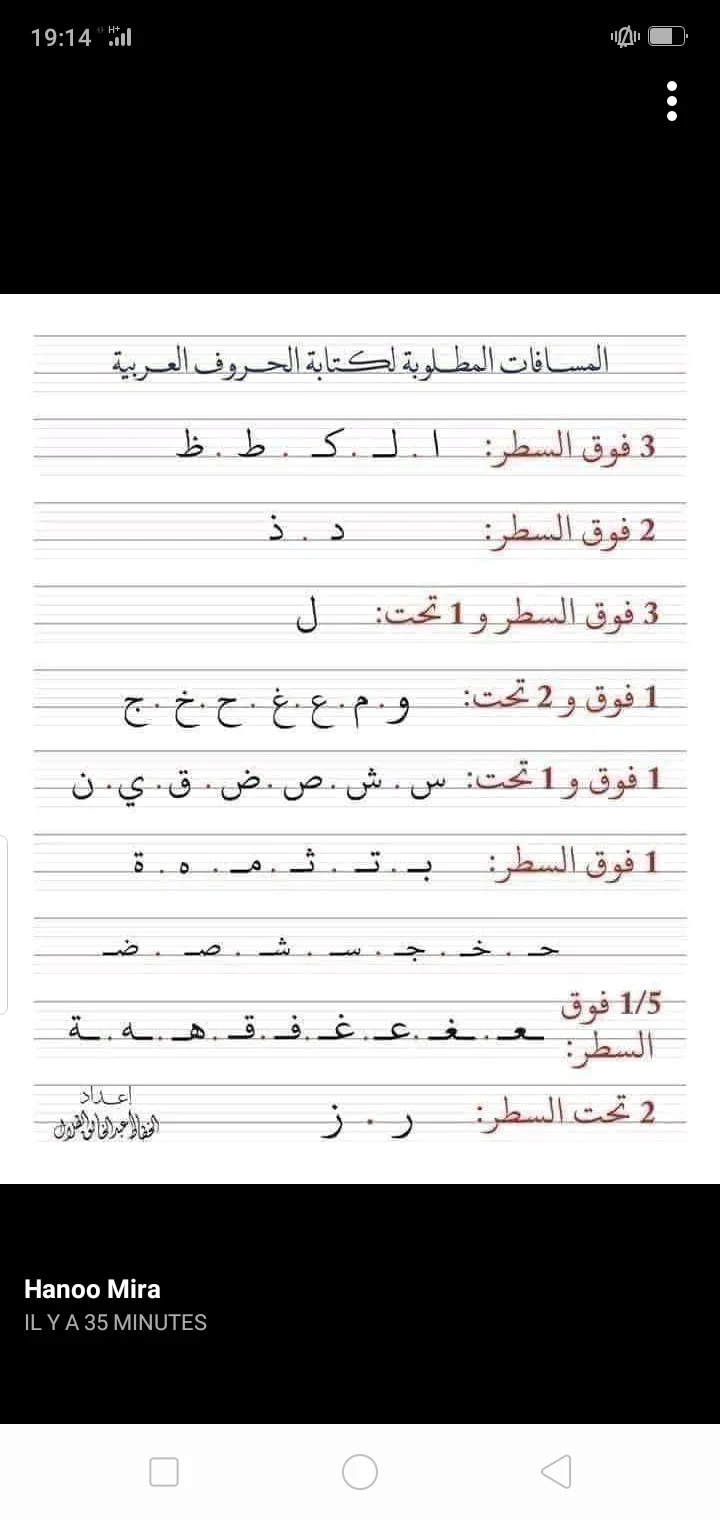 19:14 H+
المسافات المطلوبة لكتابة الحروف العربية
3 فوق السطر: ا . لـ . كـ . ط . ظ
2 فوق السطر: د . ذ
3 فوق السطر و 1 تحت: ل
1 فوق و 2 تحت: و . م . ع . غ . ح . خ . ج
1 فوق و 1 تحت: س . ش . ص . ض . ق . ي . ن
1 فوق السطر: بـ . تـ . ثـ . مـ . ه . ة
حـ . خـ . جـ . سـ . شـ . صـ . ضـ
1/5 فوق
السطر: ـعـ . ـغـ . عـ . غـ . فـ . قـ . هـ . ـه . ـة
2 تحت السطر: ر . ز
إعداد
الخطاط عبد الخالق الهلال
Hanoo Mira
IL Y A 35 MINUTES